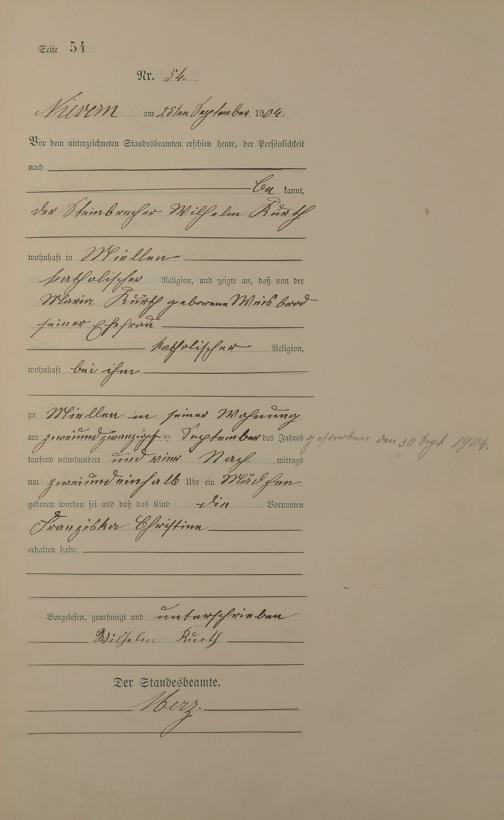 Seite 54
Nr. 54.
Nievern am 25ten September 1904.
Vor dem unterzeichneten Standesbeamten erschien heute, der Persönlichkeit
nach
be kannt,
der Steinbrecher Wilhelm Kurth
wohnhaft in Miellen
katholischer Religion, und zeigte an, daß von der
Maria Kurth geborene Weisbrod
seiner Ehefrau
katholischer Religion,
wohnhaft bei ihm
zu Miellen in seiner Wohnung
am zweiundzwanzigsten September des Jahres
tausend neunhundert und vier Nach mittags
um zweiundeinhalb Uhr ein Mädchen
geboren worden sei und daß das Kind die Vornamen
Franziska Christine
erhalten habe.
Vorgelesen, genehmigt und unterschrieben
Wilhelm Kurth
Der Standesbeamte.
Merz.
gestorben den 30 Sept 1904.